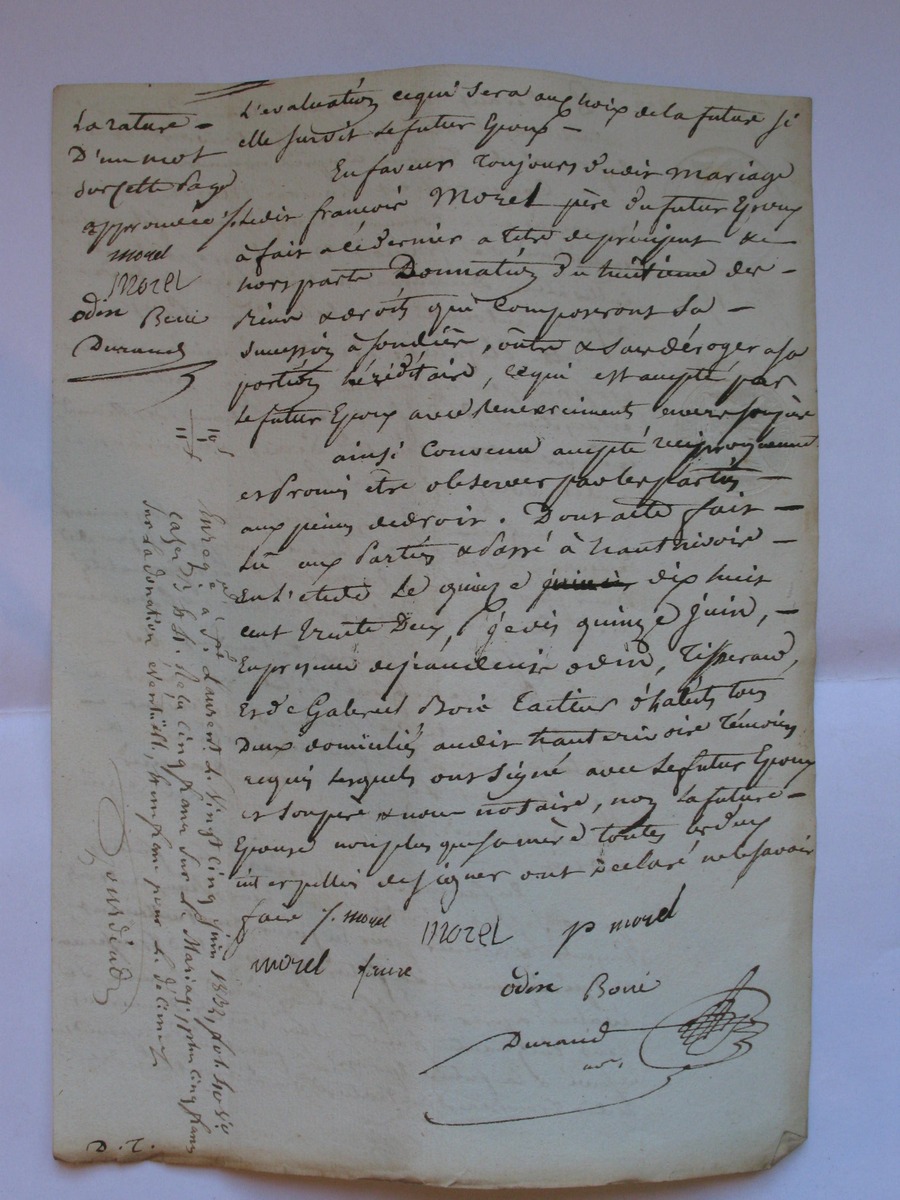 L'evaluation ce qui sera au choix de la future si
elle survit le futur Epoux —
En faveur toujours dudit mariage
ledit francois Morel père du futur Epoux
à fait a ce dernier a titre de préciput &
hors parte Donnation du huitieme des —
Biens & droits qui Composeront sa —
succession à son décès, outre & sans déroger a sa
portion héréditaire, ce qui est accepté par
le futur Epoux avec remerciments envers son père
ainsi Convenu accepté reciproquement
et Promis être observer par les parties —
aux peines de droit. Dont acte fait —
Lu aux Parties & Passé à hauterivoire —
En L'etude Le quinze dix huit
cent trente Deux, Je dis quinze juin, —
En presence de odin, Tisserand,
Et de Gabriel Boié tous
Deux domiciliés audit hauterivoire témoins
requis lesquels ont signé avec le futur Epoux
et son père & nous notaire, non la future —
Epouse non plus que sa mère toutes deux
interpellées de signer ont déclaré ne le savoir
faire J. morel
morel p morel
morel faure
odin Boié
Durand
La rature —
D'un mot
sur cette Page
approuvée
morel
morel
odin Boié
Durand
10
1
11
Enreg. à St. Laurent le Vingt cinq juin 1832, fol. 40
cases 3 & 4. Reçu cinq francs sur le Mariage, plus cinq francs
sur la donation éventuelle, & un franc pour le décime
D. T.